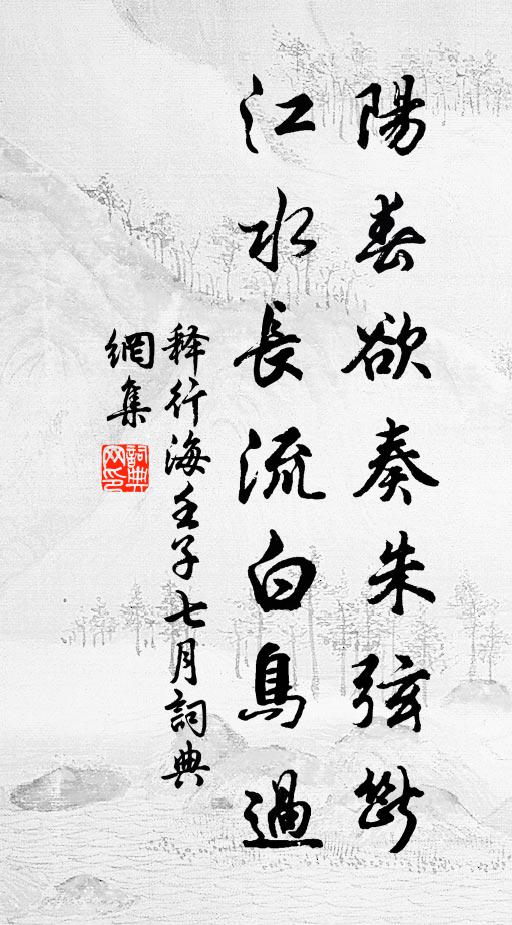 陽春欲奏朱弦斷
江水長流白鳥過
释行海壬子七月詞典
網集
詞典
网印